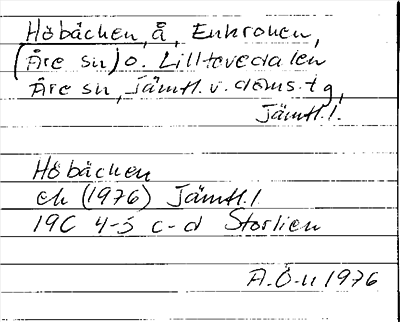 Höbäcken, å, Enkronen,
(Åre sn) o. Lilltevedalen
Åre sn, Jämtl. v. doms. tg,
Jämtl. l.
Höbäcken
ek (1976) Jämtl. l
19C 4-5 c-d Storlien
A.Ö-n 1976